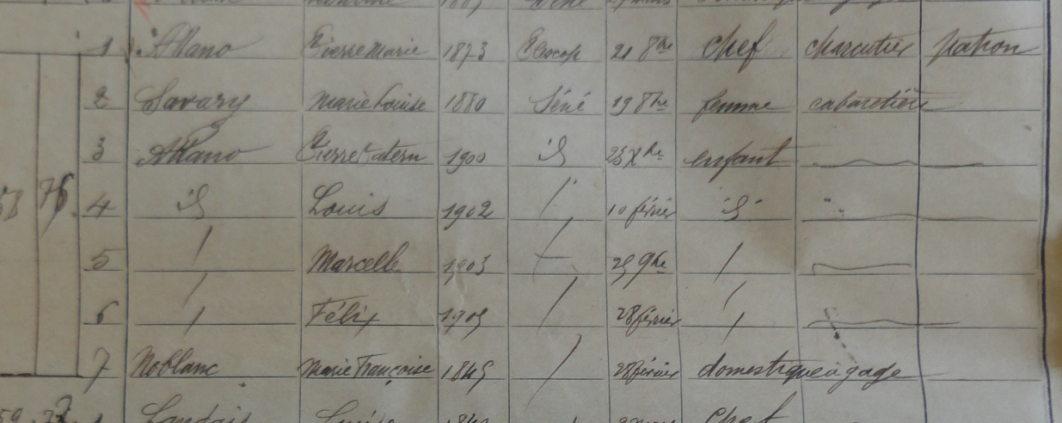 1 Allano Pierre Marie 1873 21 8bre chef charcutier patron
2 Savary Marie Louise 1880 Séné 19 8bre femme cabaretière
3 Allano Pierre 1900 id 23 Xbre enfant
58 76 4 id Louis 1902 / 10 février id "
5 / Marcelle 1903 29 9bre /
6 / Félix 1905 / 28 février /
7 Noblanc Marie Françoise 1845 / 28 février domestique à gage
1 chef